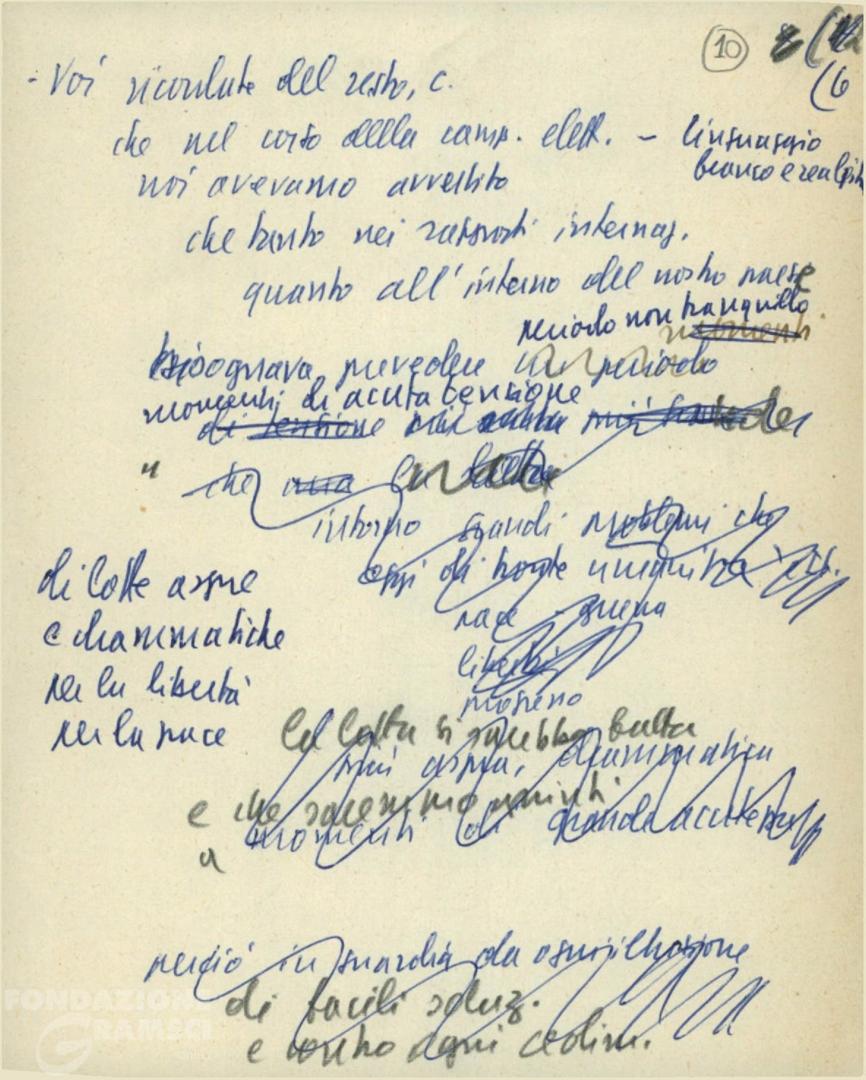 10
(6
- Voi ricordate del resto, c.
che nel corso della camp. elett. - linguaggio
franco e realist
noi avevamo avvertito
che tanto nei rapporti internaz.
quanto all'interno del nostro paese
periodo non tranquillo
momenti
bisognava prevedere un periodo
momenti di acuta tensione
di tensione più
che una la lotta
intorno grandi problemi che
oggi di fronte umanità
pace - guerra
libertà
progresso
di lotte aspre
e drammatiche
per la libertà
per la pace
la lotta si sarebbe fatta
più aspra, drammatica
e che saremmo giunti
a momenti di grande acutezza
perciò in guardia da ogni illusione
di facili soluz.
e contro ogni cedim.
FONDAZIONE
GRAMSCI